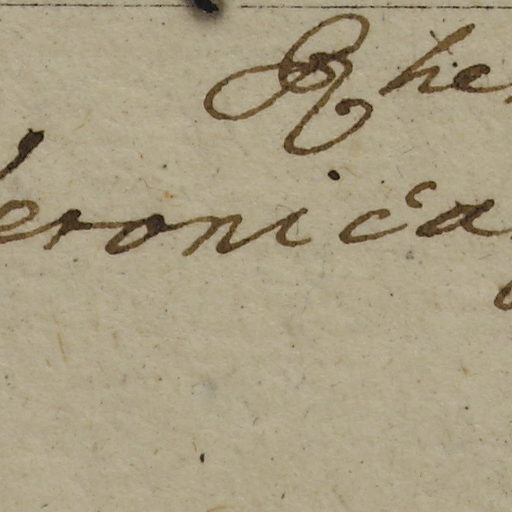 Rhe
eronica